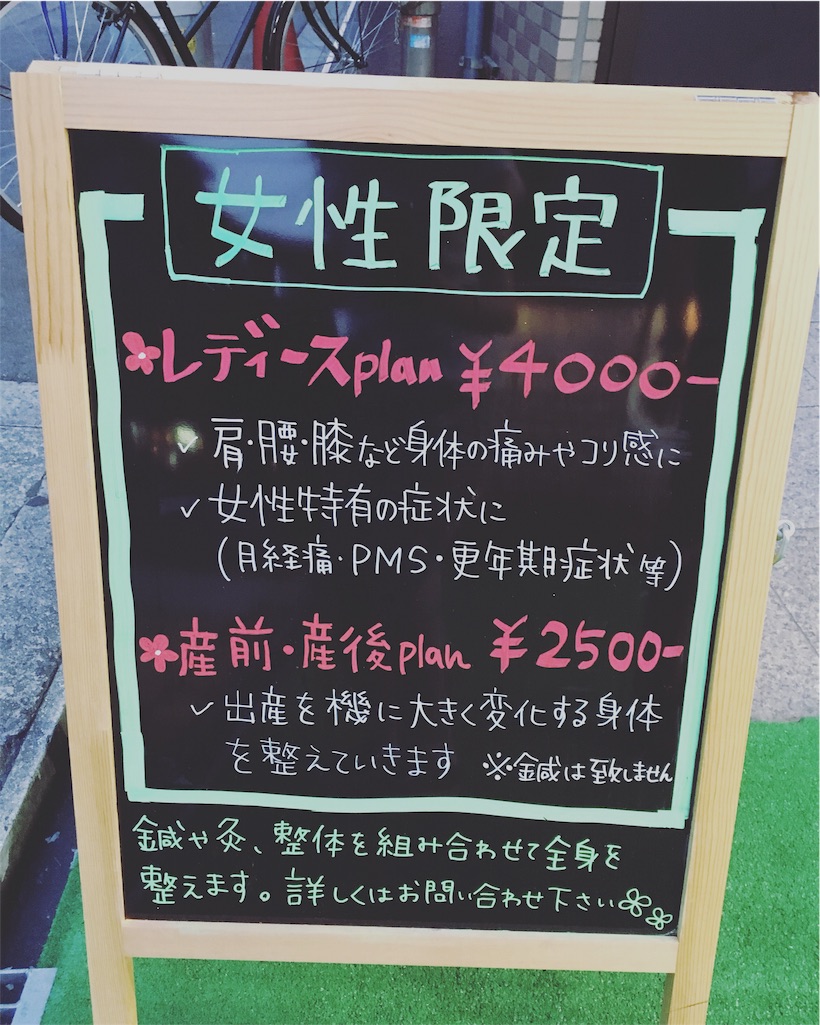 女性限定
レディースplan ¥4000-
✓ 肩・腰・膝など身体の痛みやコリ感に
✓ 女性特有の症状に
(月経痛・PMS・更年期症状等)
産前・産後plan ¥2500-
✓ 出産を機に大きく変化する身体
を整えていきます ※鍼は致しません
鍼や灸、整体を組み合わせて全身を
整えます。詳しくはお問い合わせ下さい